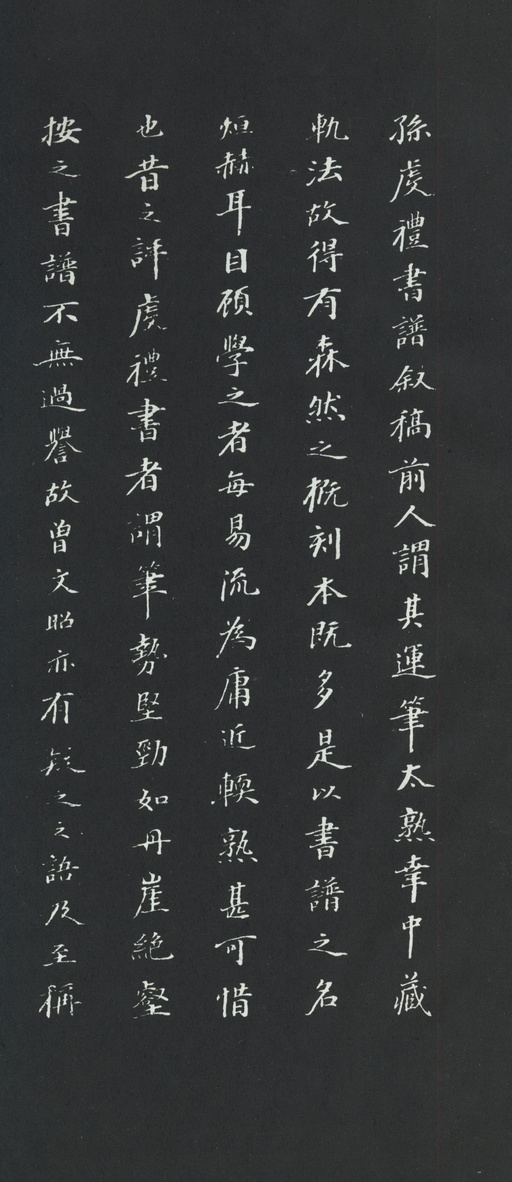 孫虔禮書譜叙稿前人謂其運筆太熟幸中藏
軌法故得有森然之概刻本既多是以書譜之名
烜赫耳目顧學之者每易流為庸近輭熟甚可惜
也昔之評虔禮書者謂筆勢堅勁如丹崖絶壑
按之書譜不無過譽故曾文昭亦有疑之之語及至稱